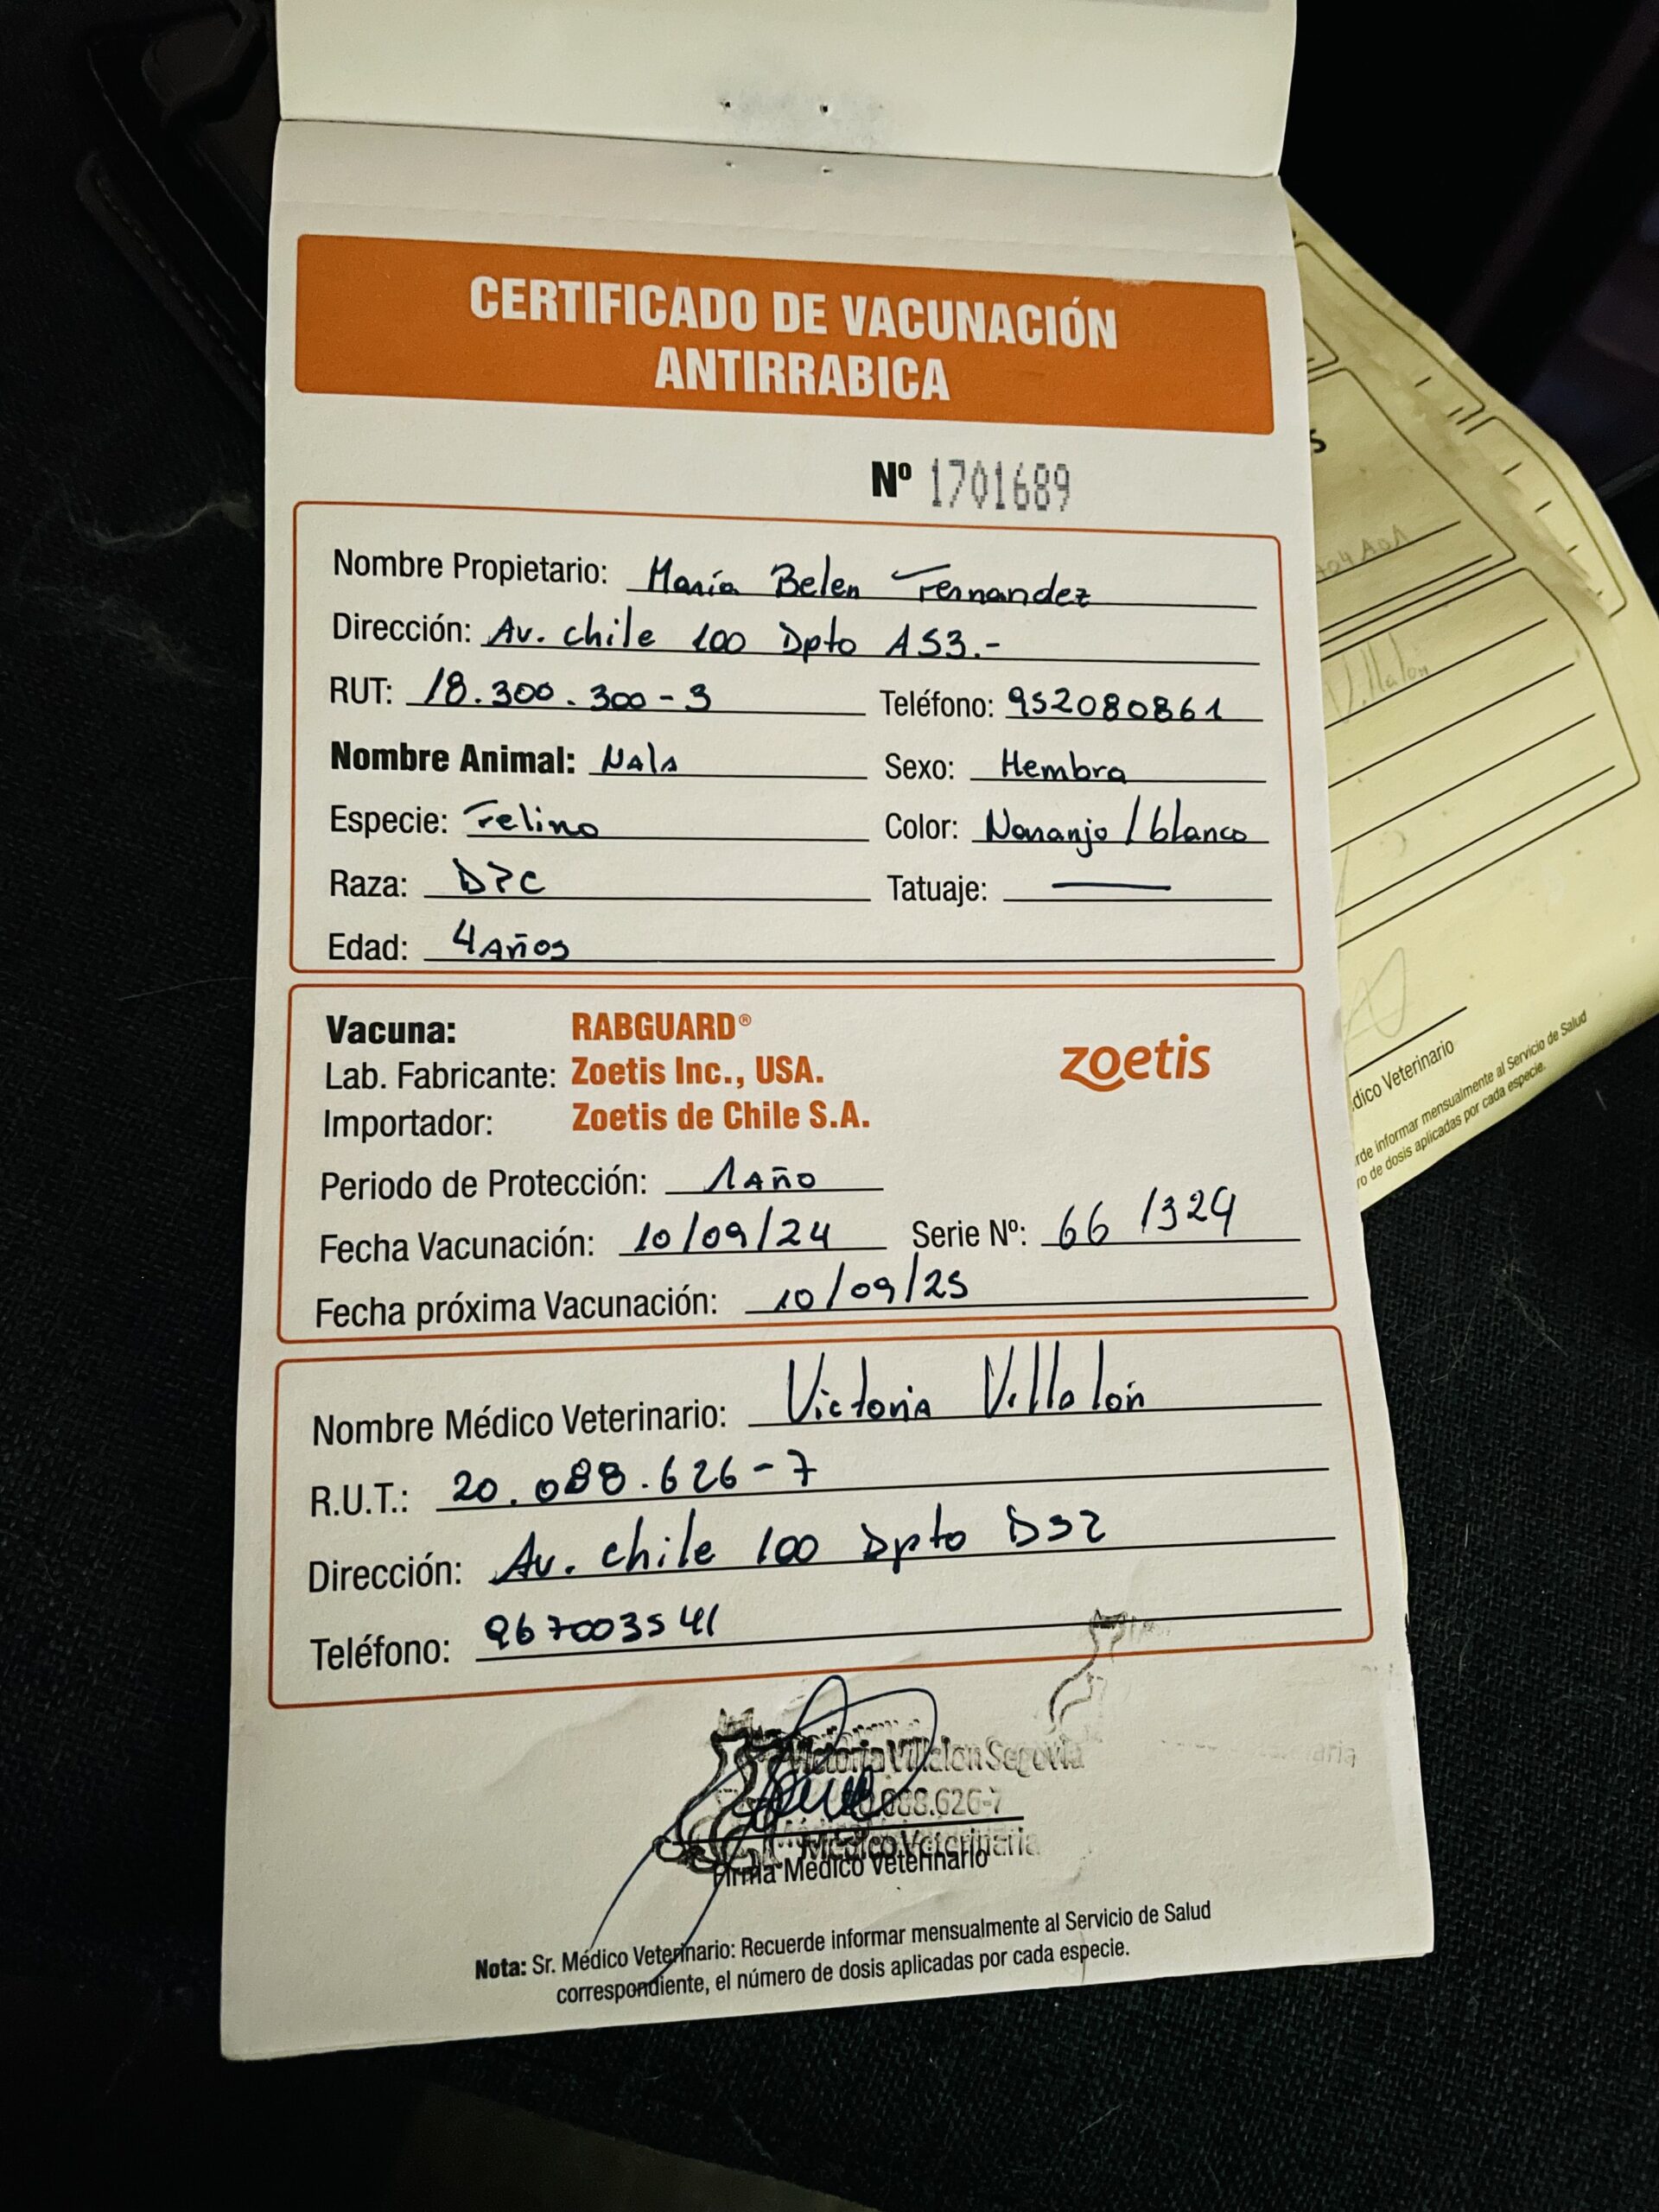 CERTIFICADO DE VACUNACIÓN
ANTIRRABICA
Nº 1701689
Nombre Propietario: María Belen Fernandez
Dirección: Av. chile 100 Dpto A53.-
RUT: 18.300.300-3 Teléfono: 952080861
Nombre Animal: Nala Sexo: Hembra
Especie: Felino Color: Naranjo / blanco
Raza: DPC Tatuaje: —
Edad: 4 Años
Vacuna: RABGUARD®
Lab. Fabricante: Zoetis Inc., USA.
zoetis
Importador: Zoetis de Chile S.A.
Periodo de Protección: 1 Año
Fecha Vacunación: 10/09/24 Serie Nº: 66 /324
Fecha próxima Vacunación: 10/09/25
Nombre Médico Veterinario: Victoria Villalón
R.U.T.: 20.088.626-7
Dirección: Av. chile 100 Dpto D32
Teléfono: 967003541
Victoria Villalon Segovia
.088.626-7
Médico Veterinaria
Firma Médico Veterinario
Nota: Sr. Médico Veterinario: Recuerde informar mensualmente al Servicio de Salud
correspondiente, el número de dosis aplicadas por cada especie.
Villalón
dico Veterinario
rde informar mensualmente al Servicio de Salud
ro de dosis aplicadas por cada especie.